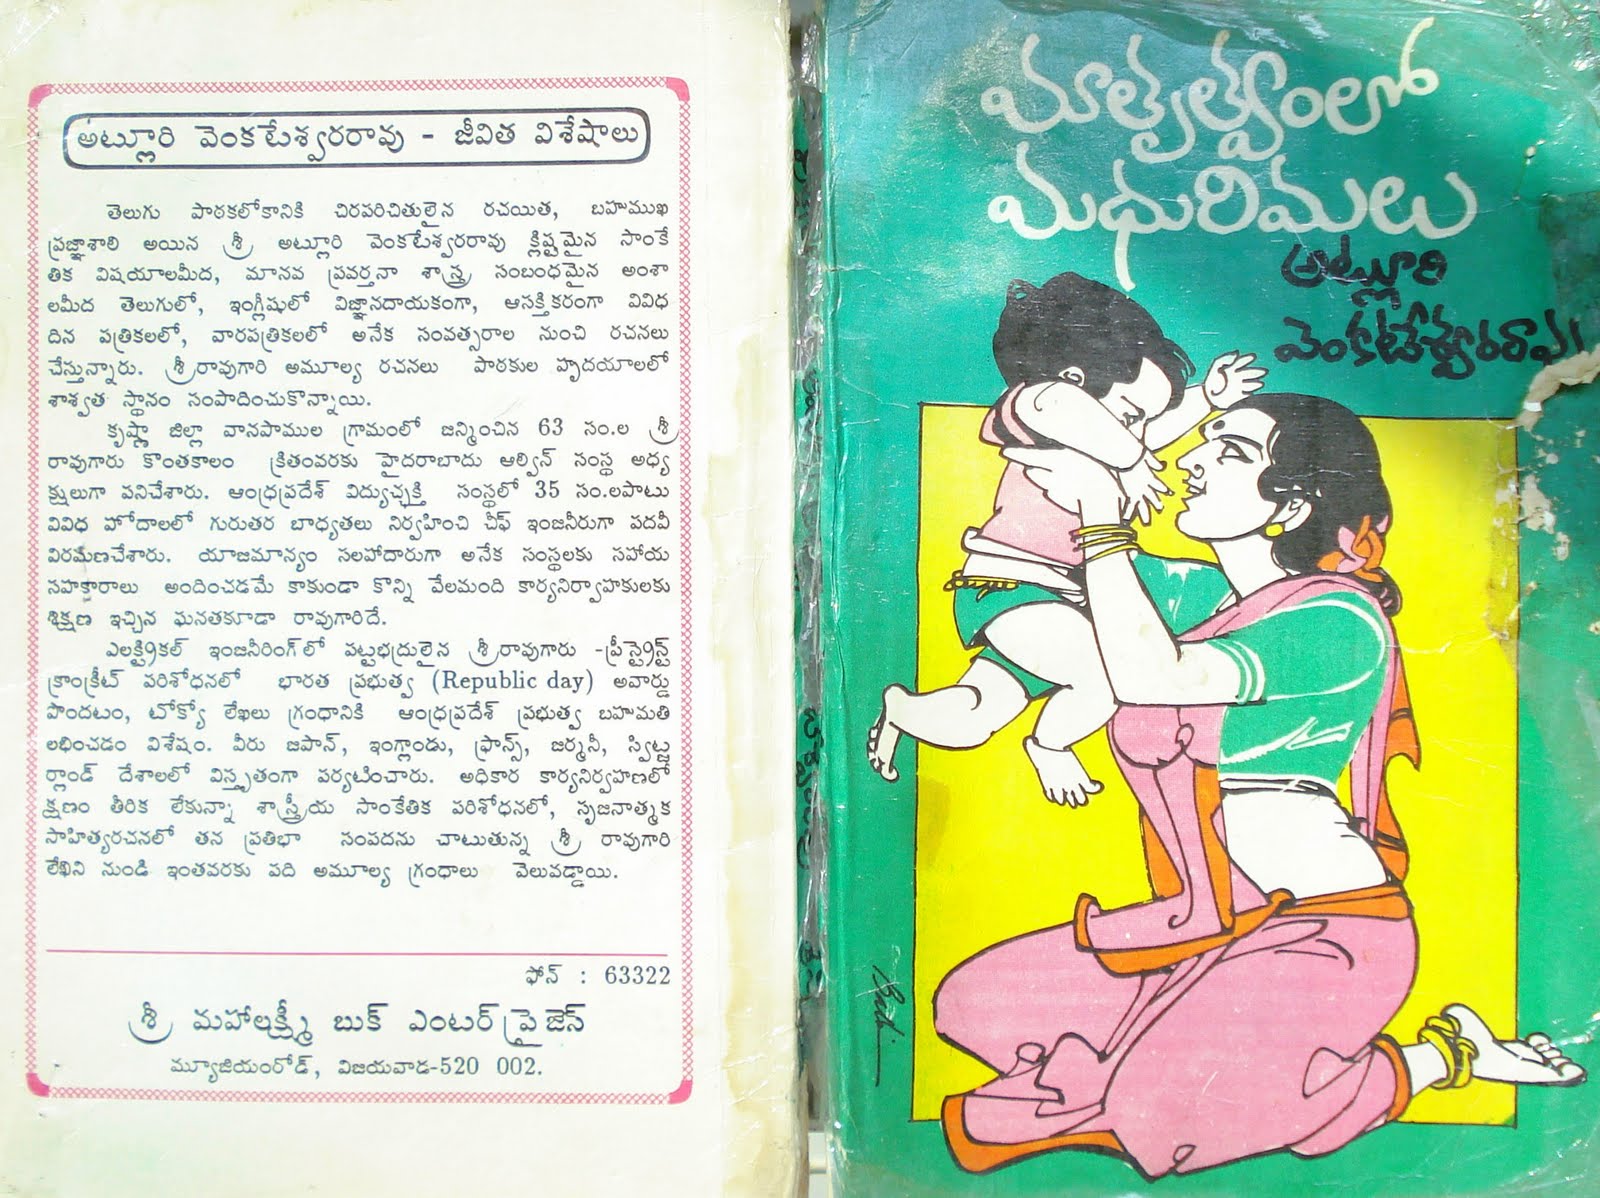 అట్లూరి వెంకటేశ్వరరావు - జీవిత విశేషాలు
తెలుగు పాఠకలోకానికి చిరపరిచితులైన రచయిత, బహుముఖ
ప్రజ్ఞాశాలి అయిన శ్రీ అట్లూరి వెంకటేశ్వరరావు క్లిష్టమైన సాంకే
తిక విషయాలమీద, మానవ ప్రవర్తనా శాస్త్ర సంబంధమైన అంశా
లమీద తెలుగులో, ఇంగ్లీషులో విజ్ఞానదాయకంగా, ఆసక్తికరంగా వివిధ
దిన పత్రికలలో, వారపత్రికలలో అనేక సంవత్సరాల నుంచి రచనలు
చేస్తున్నారు. శ్రీరావుగారి అమూల్య రచనలు పాఠకుల హృదయాలలో
శాశ్వత స్థానం సంపాదించుకొన్నాయి.
కృష్ణా జిల్లా వానపాముల గ్రామంలో జన్మించిన 63 సం.ల శ్రీ
రావుగారు కొంతకాలం క్రితంవరకు హైదరాబాదు ఆల్విన్ సంస్థ అధ్య
క్షులుగా పనిచేశారు. ఆంధ్రప్రదేశ్ విద్యుచ్ఛక్తి సంస్థలో 35 సం.లపాటు
వివిధ హోదాలలో గురుతర బాధ్యతలు నిర్వహించి చీఫ్ ఇంజనీరుగా పదవీ
విరమణచేశారు. యాజమాన్యం సలహాదారుగా అనేక సంస్థలకు సహాయ
సహకారాలు అందించడమే కాకుండా కొన్ని వేలమంది కార్యనిర్వాహకులకు
శిక్షణ ఇచ్చిన ఘనతకూడా రావుగారిదే.
ఎలక్ట్రికల్ ఇంజనీరింగ్‌లో పట్టభద్రులైన శ్రీరావుగారు -ప్రీస్ట్రెస్ట్
క్రాంక్రీట్ పరిశోధనలో భారత ప్రభుత్వ (Republic day) అవార్డు
పొందటం, టోక్యో లేఖలు గ్రంధానికి ఆంధ్రప్రదేశ్ ప్రభుత్వ బహుమతి
లభించడం విశేషం. వీరు జపాన్, ఇంగ్లాండు, ఫ్రాన్స్, జర్మనీ, స్విట్జ
ర్లాండ్ దేశాలలో విస్తృతంగా పర్యటించారు. అధికార కార్యనిర్వహణలో
క్షణం తీరిక లేకున్నా శాస్త్రీయ సాంకేతిక పరిశోధనలో, సృజనాత్మక
సాహిత్యరచనలో తన ప్రతిభా సంపదను చాటుతున్న శ్రీ రావుగారి
లేఖిని నుండి ఇంతవరకు పది అమూల్య గ్రంధాలు వెలువడ్డాయి.
ఫోన్ : 63322
శ్రీ మహాలక్ష్మీ బుక్ ఎంటర్ ప్రైజెస్
మ్యూజియంరోడ్, విజయవాడ-520 002.
మాతృత్వంలో
మధురిమలు
అట్లూరి
వెంకటేశ్వరరావు